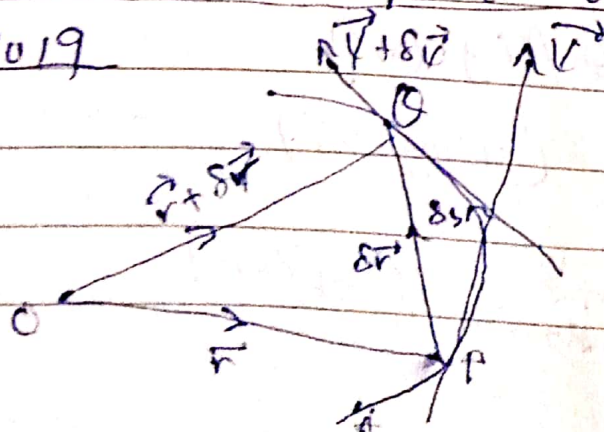 019
V⃗+δV⃗
V⃗
Q
r⃗+δr⃗
δs
δr⃗
O
r⃗
P
A